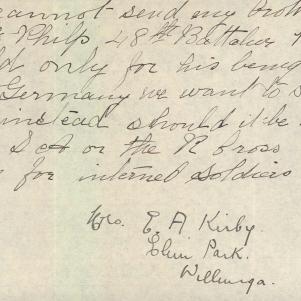 cannot send my broth
Philp 48th Battalion
d only for his being
Germany we want to s
instead should it be
S A or the R Cross
for interned soldiers
Mrs. E. A Kirby.
Elim Park.
Willunga.